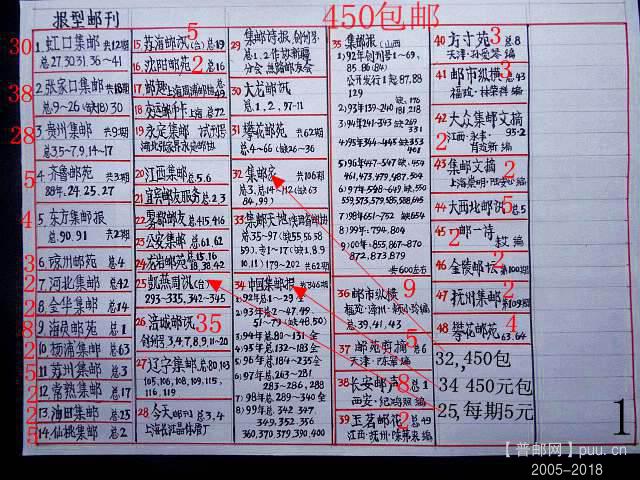 报型邮刊
450包邮
30 1. 虹口集邮 共12期
总27,30,31,36~41
38 2. 张家口集邮 共18期
总9~26(缺18)30
28 3. 贵州集邮 共9期
总35~7,9,14~17
4 4. 齐鲁邮苑 共3期
88年,24,25,27
4 5. 东方集邮报
总90,91 共2期
3 6. 琼州邮苑 总4
2 7. 河北集邮 总42
2 8. 金华集邮 总14
8 9. 海员邮苑 总1
2 10. 杨浦集邮 总63
2 11. 苏州集邮 总3
2 12. 常熟集邮 总17
2 13. 海田集邮 总25
5 14. 仙桃集邮 总2
15 苏海邮汛(台)总19 5
16 沈阳邮苑 总16 2
18 交运邮币卡 上海,总72
19 永定集邮 试刊号
20 江西集邮 总5,6
21 宜宾邮友服务 总2,3
22 雾都邮友 总415,416
23 公安集邮 总61,62
24 龙岩邮苑 总15,16
18,38,42
25 凯燕周讯(台)
293~335,342~345
26 涪城邮汛 35
创刊号,3,4,7,8,9,11~20
27 辽宁集邮 总80,103
105,106,108,109,115,
116,119
28 今天(邮刊)总3,4
29 集邮诗报,创刊号
总1,2
30 大龙邮讯
总1,2,97~11
31 攀花邮苑 共62期
总4~66(缺26~36
32 集邮家 共106期
总3,总14~112(缺63
84,99)
33 集邮天地
总35~97(缺55,56,58
59),专1~17(缺1,8,9
10,11)179~202 共62期
34 中国集邮报 共346期
1)92年总1~29全
2)93年2~47,49
51~79(缺48,50)
3)94年总80~131全
4)95年总132~183全
5)96年总184~235全
6)97年总263~281
283~286,288
7)98年总289~340全
8)99年总342 347
349,352,356
360,370,379,390,400
35 集邮报(山西
1)92年创刊号1~69,
85,86(84)
公开发行1至87,88
129
2)93年139~240 缺176
181,218
3)94年241~343
4)95年344~445 缺353
5)96年447~547缺454
461,473,492,493,507
6)97年548~649缺550
559,573,579,585,588,645
7)98年651~752缺654
8)99年:794,804
9)00年:855,867~870
872,873,879
共600左右
36 邮市纵横 9
总39,41,43
37 邮苑剪摘 总6 5
天津·陈家编
38 长安邮声 总1 8
西安·纪鸿照编
39 玉茗邮花 总49 2
江西·抚州·陈第来编
40 方寸苑 总8 3
天津·孙爱琴编
41 邮市纵横 总43 3
福苑·林荣祥编
42 大众集邮文摘
95·2 2
43 集邮文摘 2
44 大西北邮讯 总5 5
45 邮一诗 2
46 金陵邮坛 第100期 2
47 抚州集邮 第109期 2
48 攀花邮苑 63,64 4
32,,450包
34 450元包
25,每期5元
1
【普邮网】puu.cn
2005-2018